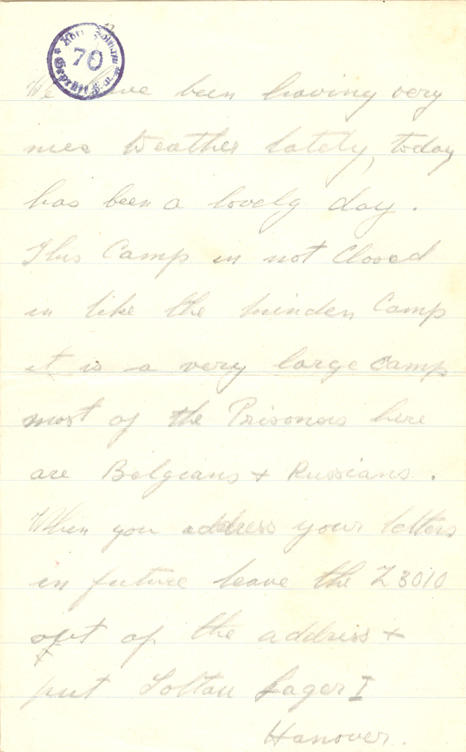 70
Geprüft
We have been having very
nice Weather lately, today
has been a lovely day.
This Camp is not Closed
in like the Minden Camp
it is a very large camp
most of the Prisoners here
are Belgians + Russians.
When you address your letters
in future leave the Z 3010
out of the address +
put Soltau Lager I
Hanover.